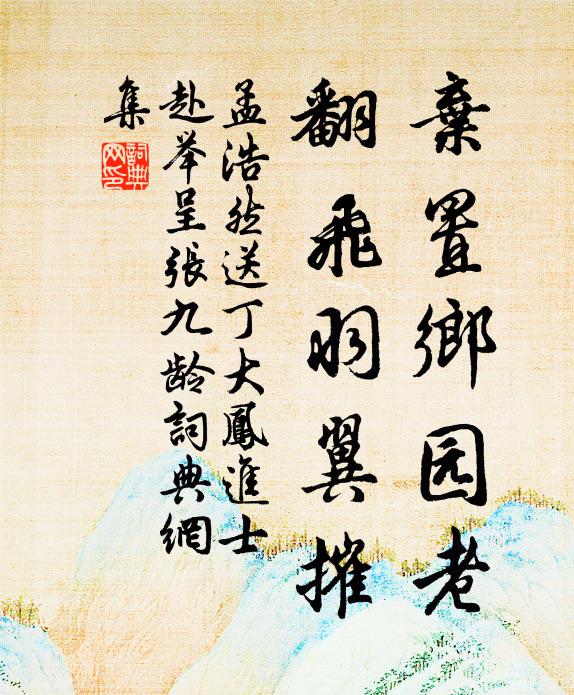 棄置鄉园老
翻飛羽翼摧
孟浩然送丁大鳳進士
赴举呈張九龄詞典網
集
詞典網印